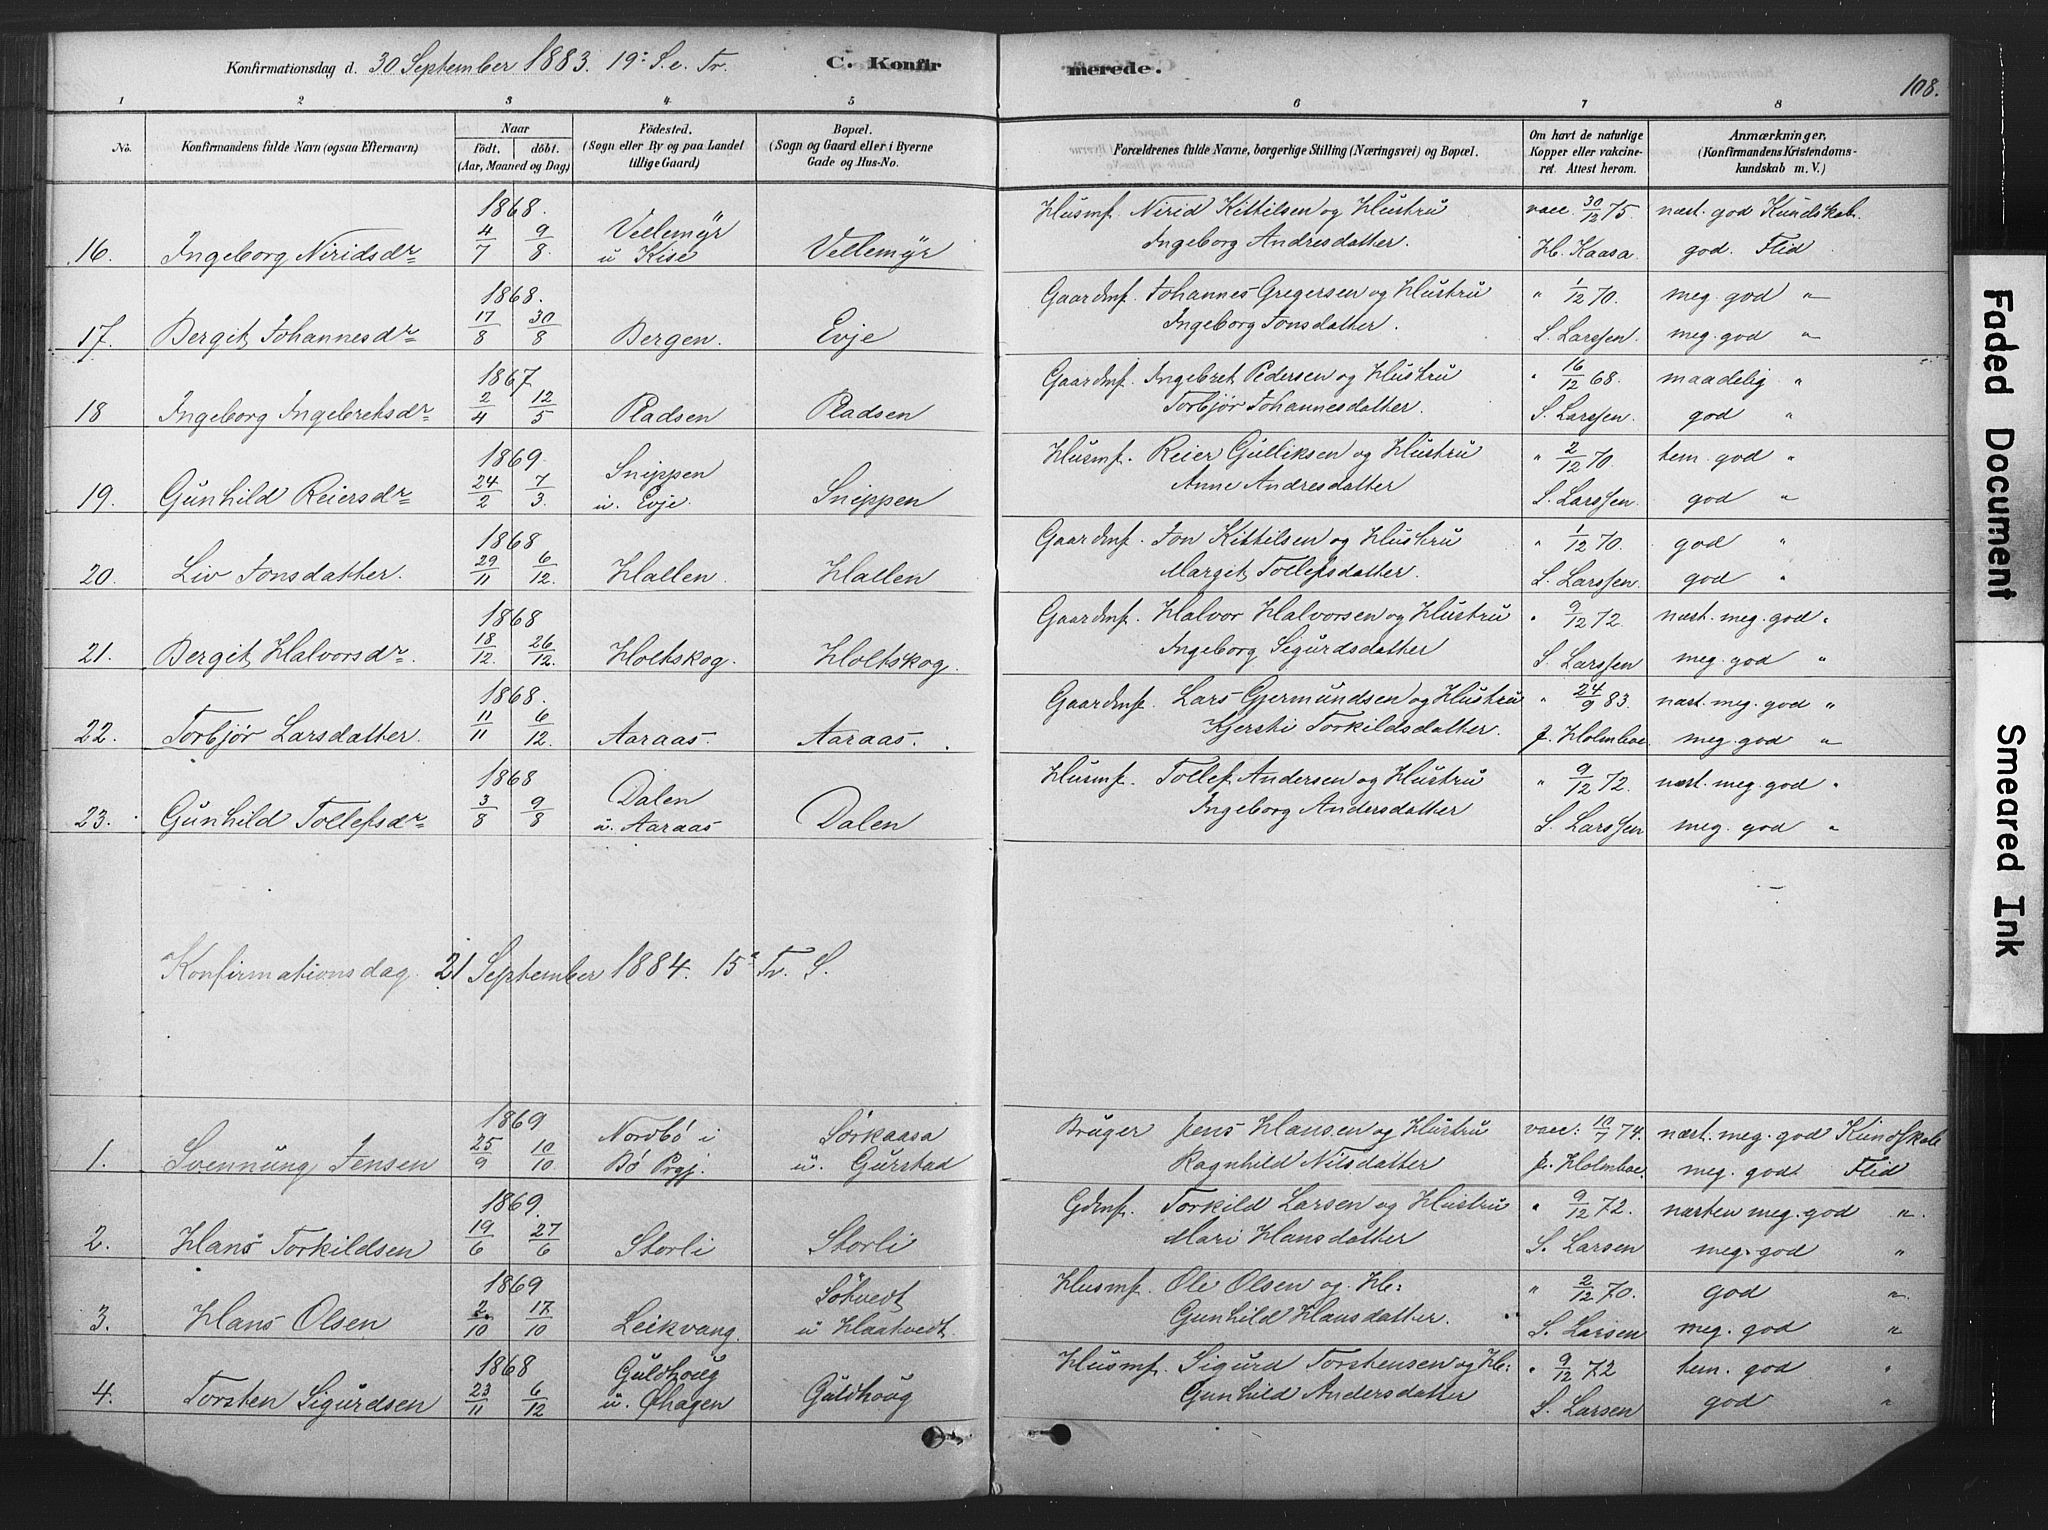 Konfirmationsdag d. 30 September 1883. 19: S. e. Tr. C. Konfir merede. 108.
1 2 3 4 5 6 7 8
No. Konfirmandens fulde Navn (ogsaa Efternavn) Naar födt. döbt. (Aar, Maaned og Dag) Födested. (Sogn eller By og paa Landet tillige Gaard) Bopæl. (Sogn og Gaard eller i Byerne Gade og Hus-No. Forældrenes fulde Navne, borgerlige Stilling (Næringsvei) og Bopæl. Om havt de naturlige Kopper eller vakcineret. Attest herom. Anmærkninger. (Konfirmandens Kristendomskundskab m. V.)
1868. Vellemÿr Husmf. Nirid Kittilsen og Hustru vacc. 30/12 75. næst. god Kundskab.
16. Ingeborg Niridsdr 4/7 9/8 u Kise Vellemÿr Ingeborg Andresdatter. H. Kaasa. god. Flid
1868. Gaardmf. Johannes Gregersen og Hustru " 1/12 70. meg. god "
17. Bergit Johannesdr 17/8 30/8 Bergen. Evje Ingeborg Jonsdatter. S. Larssen. meg. god "
1867. Gaardmf. Ingebret Pedersen og Hustru " 16/12 68. maadelig "
18 Ingeborg Ingebretsdr 2/4 12/5 Pladsen Pladsen Torbjør Johannesdatter. S. Larssen. god "
1869. Snippen Husmf. Reier Gulliksen og Hustru " 2/12 70. tem. god "
19. Gunhild Reiersdr 24/2 7/3. u. Evje. Snippen Anne Andresdatter S. Larssen god "
1868 Gaardmf. Jon Kittilsen og Hustru " 1/12 70. god "
20. Liv Jonsdatter. 29/11 6/12. Hallen. Hallen Margit Tollefsdatter. S. Larssen. god "
1868 Gaardmf. Halvor Halvorsen og Hustru " 9/12 72. næst. meg. god "
21. Bergit Halvorsdr. 18/12. 26/12. Holtskog. Holtskog. Ingeborg Sigurdsdatter S. Larssen meg. god "
1868. Gaardmf. Lars Gjermundsen og Hustru " 24/9 83. næst. meg. god "
22. Torbjør Larsdatter. 11/11 6/12. Aaraas. Aaraas. Kjersti Torkildsdatter. J. Holmboe. meg. god "
1868 Dalen Husmf. Tollef Andersen og Hustru " 9/12 72. næst. meg. god "
23. Gunhild Tollefsdr 3/8 9/8 u. Aaraas Dalen Ingeborg Andersdatter S. Larssen meg. god "
Konfirmationsdag. 21 September 1884. 15. Tr. S.
1869 Nordbö i Sörkaasa Bruger Jens Hansen og Hustru vacc: 10/7 74. næst. meg. god Kundskab
1. Svennung Jensen 25/9 10/10 Bö Prgj. u. Gurstad Ragnhild Nilsdatter J. Holmboe. meg. god. Flid
1869. Gdmf. Torkild Larsen og Hustru " 9/12 72. næsten meg. god "
2. Hans Torkildsen 19/6 27/6 Storli Storli Mari Hansdatter S. Larsen meg. god "
1869 Sökvedt Husmf. Ole Olsen og H: " 2/12 70. god "
3. Hans Olsen 2./10 17/10 Leikvang. u Haatvedt. Gunhild Hansdatter. S. Larsen meg. god "
1868 Guldhoug Husmf. Sigurd Torstensen og H: " 9/12 72 tem. god "
4. Torsten Sigurdsen 23/11 6/12 u. Øhagen Guldhoug Gunhild Andersdatter S. Larsen god "
Faded Document
Smeared Ink